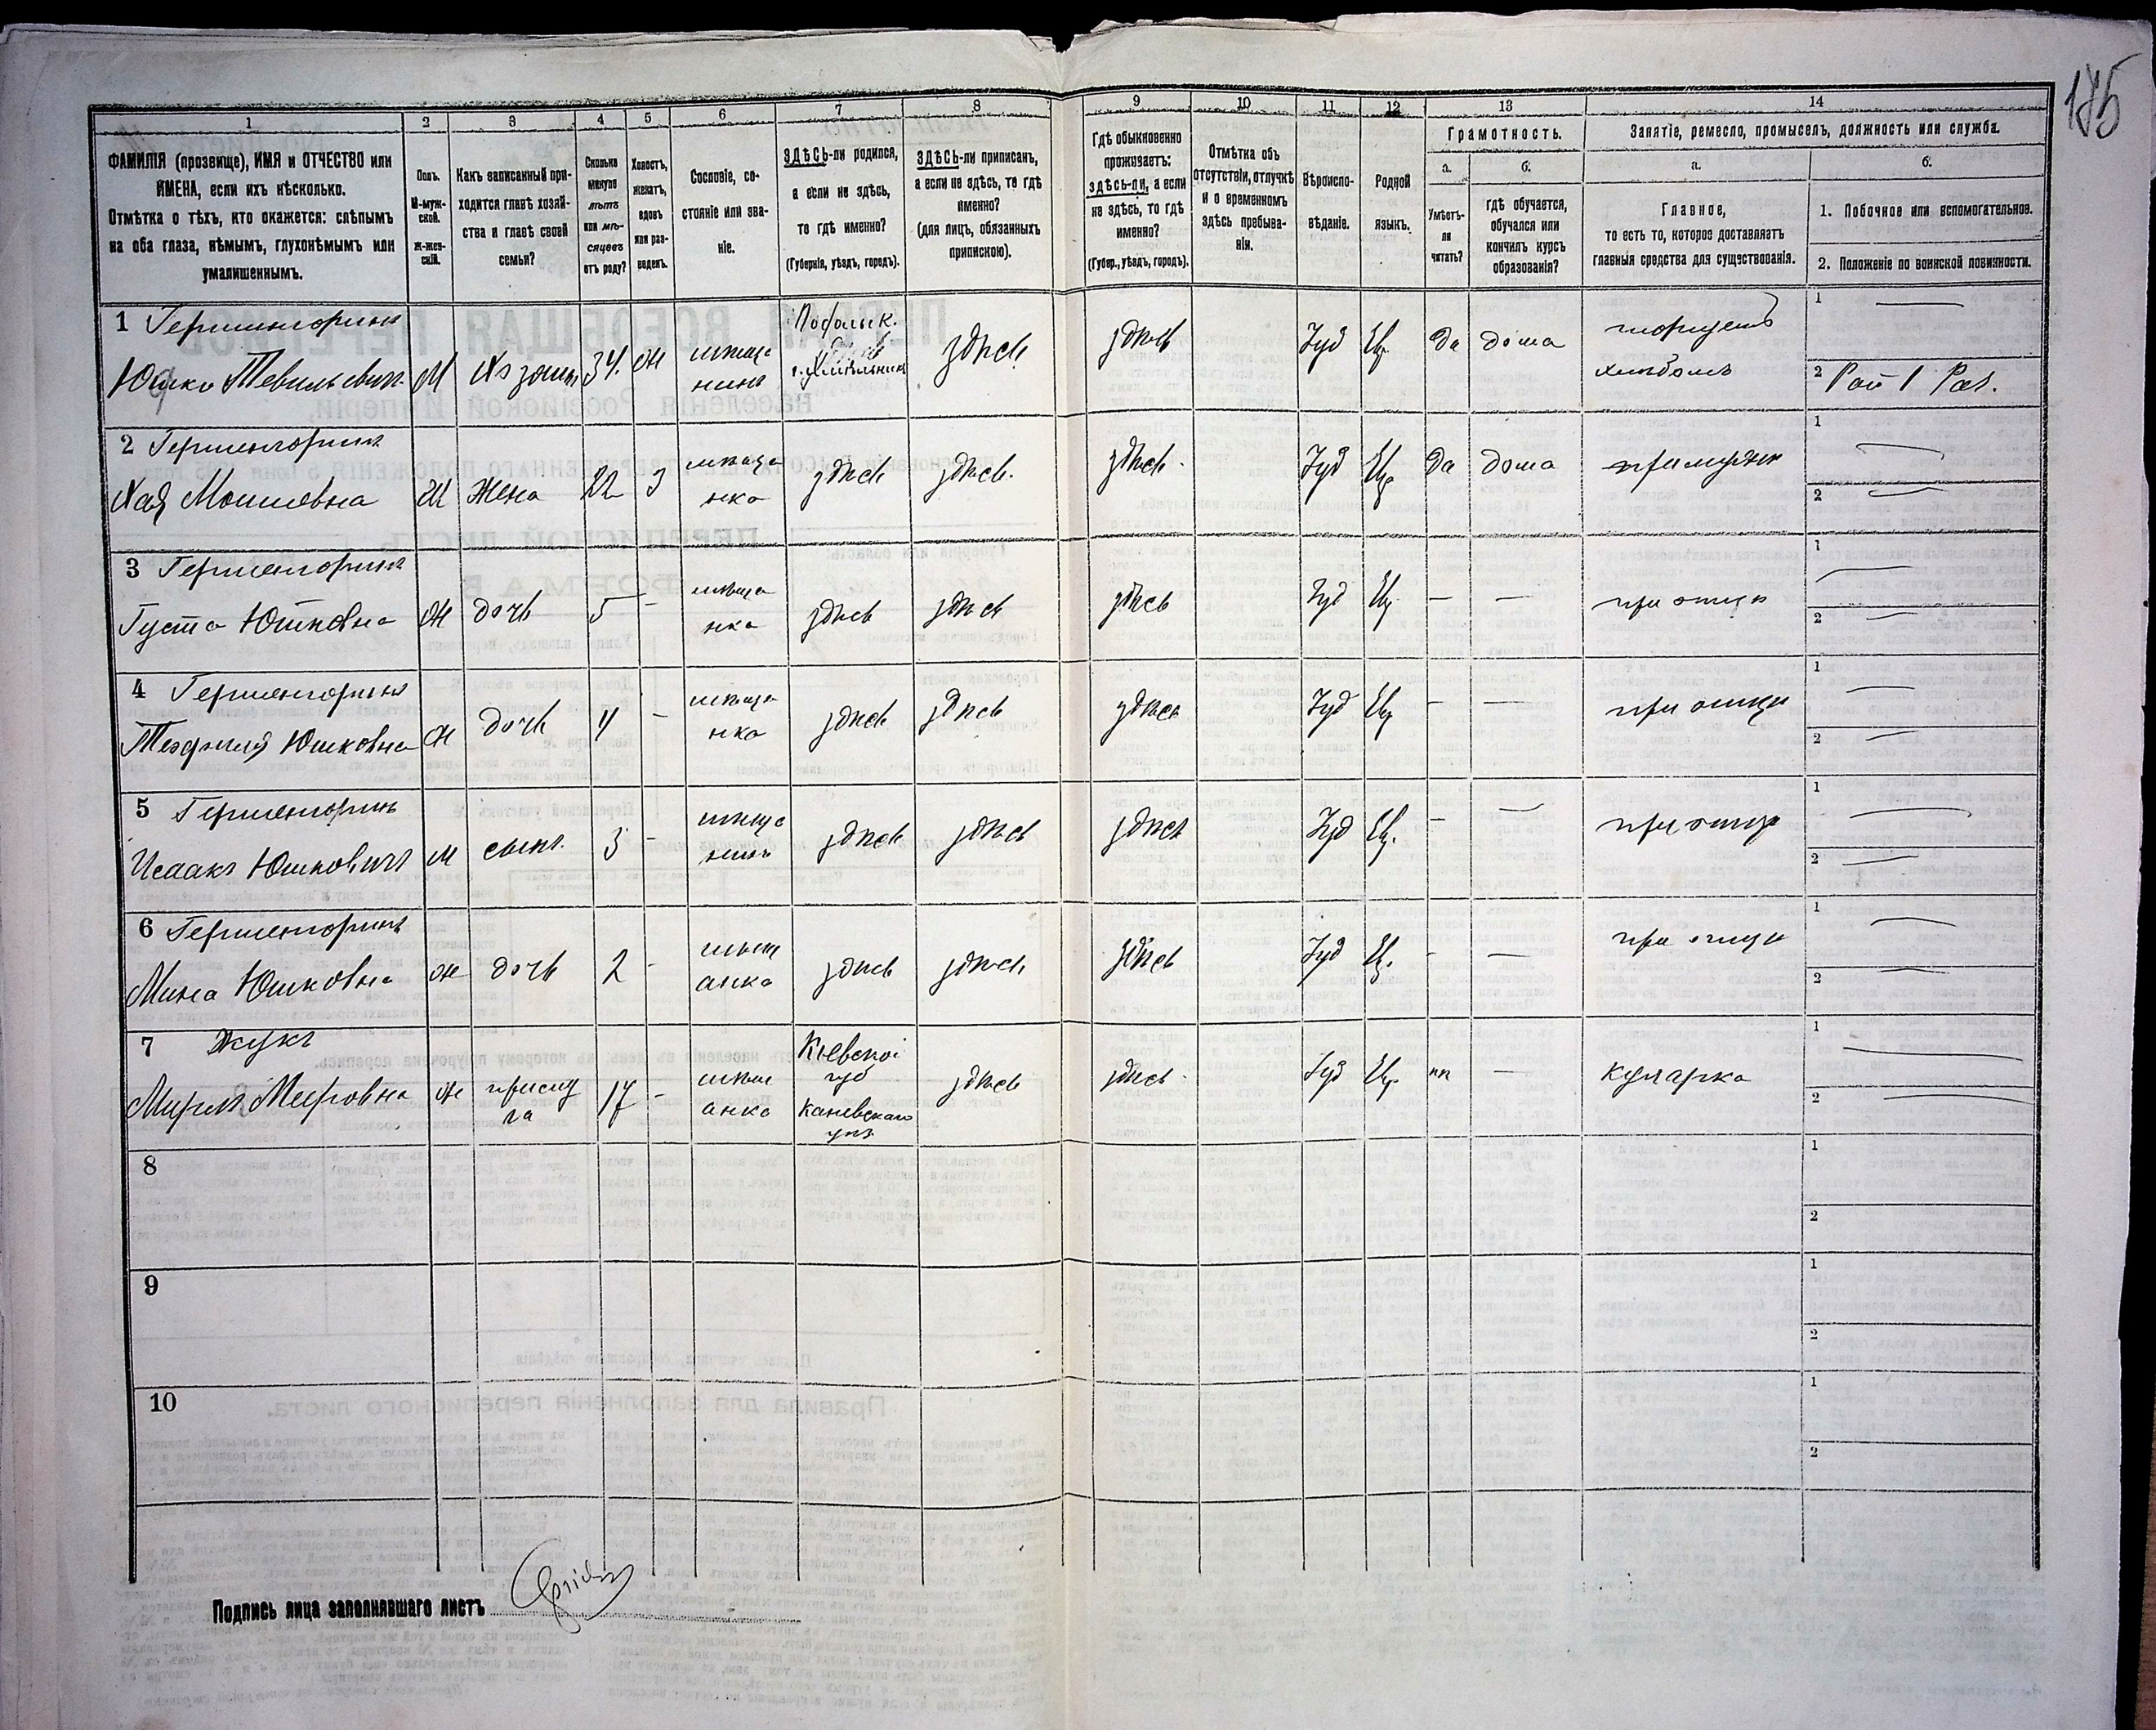 175
1 2 3 4 5 6 7 8 9 10 11 12 13 14
ФАМИЛІЯ (прозвище), ИМЯ и ОТЧЕСТВО или
ИМЕНА, если ихъ нѣсколько.
Отмѣтка о тѣхъ, кто окажется: слѣпымъ
на оба глаза, нѣмымъ, глухонѣмымъ или
умалишеннымъ.
Полъ.
М-муж-
ской.
Ж-жен-
скій.
Какъ записанный при-
ходится главѣ хозяй-
ства и главѣ своей
семьи?
Сколько
минуло
лѣтъ
или мѣ-
сяцевъ
отъ роду?
Холостъ,
женатъ,
вдовъ
или раз-
веденъ.
Сословіе, со-
стояніе или зва-
ніе.
ЗДѢСЬ-ли родился,
а если не здѣсь,
то гдѣ именно?
(Губернія, уѣздъ, городъ).
ЗДѢСЬ-ли приписанъ,
а если не здѣсь, то гдѣ
именно?
(для лицъ, обязанныхъ
припискою).
Гдѣ обыкновенно
проживаетъ:
здѣсь-ли, а если
не здѣсь, то гдѣ
именно?
(Губер., уѣздъ, городъ).
Отмѣтка объ
отсутствіи, отлучкѣ
и о временномъ
здѣсь пребыва-
ніи.
Вѣроиспо-
вѣданіе.
Родной
языкъ.
Грамотность.
а.
Умѣетъ-
ли
читать?
б.
гдѣ обучается,
обучался или
кончилъ курсъ
образованія?
Занятіе, ремесло, промыселъ, должность или служба.
а.
Главное,
то есть то, которое доставляетъ
главныя средства для существованія.
б.
1. Побочное или вспомогательное.
2. Положеніе по воинской повинности.
1 Герменгоринъ
Юшко Тевильевич. М Хозяинъ 34. ж мѣща
нинъ Подольск.
г. Хмѣльникъ здѣсь здѣсь Іуд Евр да дома торгуетъ
хлѣбомъ 1 —
2 Рат 1 Раз.
2 Герменгоринъ
Хая Мошковна Ж жена 22 З мѣща
нка здѣсь здѣсь. здѣсь. Іуд Евр да дома при мужѣ 1 —
2 —
3 Герменгоринъ
Густа Юшковна Ж дочь 5 - мѣща
нка здѣсь здѣсь здѣсь Іуд Евр — — при отцѣ 1 —
2 —
4 Герменгоринъ
Юшковна Ж дочь 4 - мѣща
нка здѣсь здѣсь здѣсь Іуд Евр - — при отцѣ 1 —
2 —
5 Герменгоринъ
Исаакъ Юшковичъ М сынъ. 3 - мѣща
нинъ здѣсь здѣсь здѣсь Іуд Евр. - — при отцѣ 1 —
2 —
6 Герменгоринъ
Мина Юшковна ж дочь 2 - мѣщ
анка здѣсь здѣсь здѣсь Іуд Евр. - — при отцѣ 1 —
2 —
7 Жукъ
Меировна ж прислу
га 17 - мѣщ
анка Кіевской
губ
Каневскаго
уѣз здѣсь здѣсь. Іуд Евр. нѣ — кухарка 1 —
2 —
8 1
2
9 1
2
10 1
2
Подпись лица заполнявшаго листъ